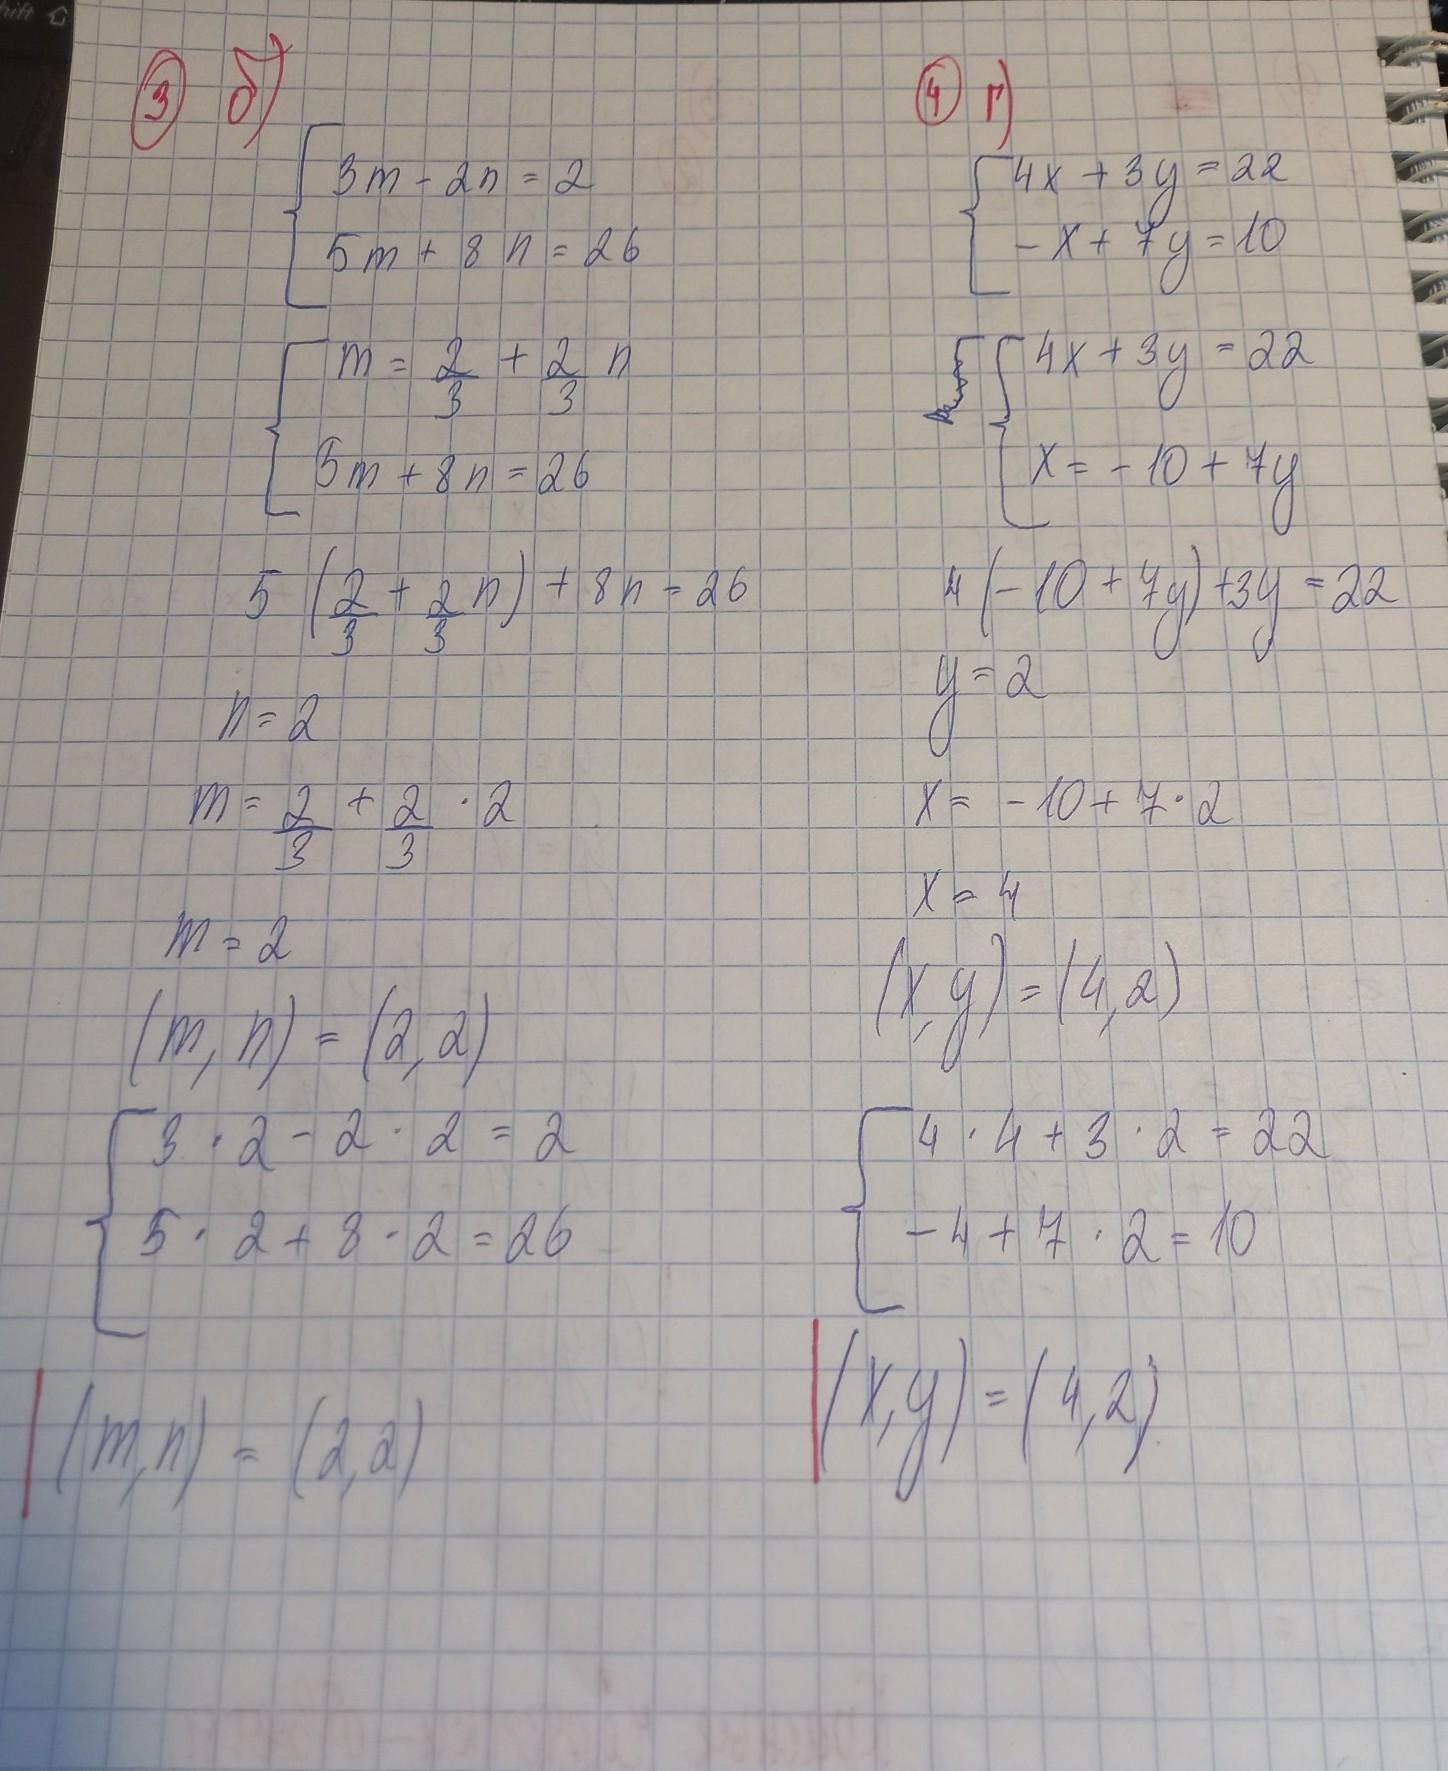 shift
③ б)
3m - 2n = 2
5m + 8n = 26
m = 2/3 + 2/3 n
5m + 8n = 26
5 (2/3 + 2/3 n) + 8n = 26
n = 2
m = 2/3 + 2/3 · 2
m = 2
(m, n) = (2, 2)
3 · 2 - 2 · 2 = 2
5 · 2 + 8 · 2 = 26
(m, n) = (2, 2)
④ г)
4x + 3y = 22
-x + 7y = 10
4x + 3y = 22
x = -10 + 7y
4 (-10 + 7y) + 3y = 22
y = 2
x = -10 + 7 · 2
x = 4
(x, y) = (4, 2)
4 · 4 + 3 · 2 = 22
-4 + 7 · 2 = 10
(x, y) = (4, 2)